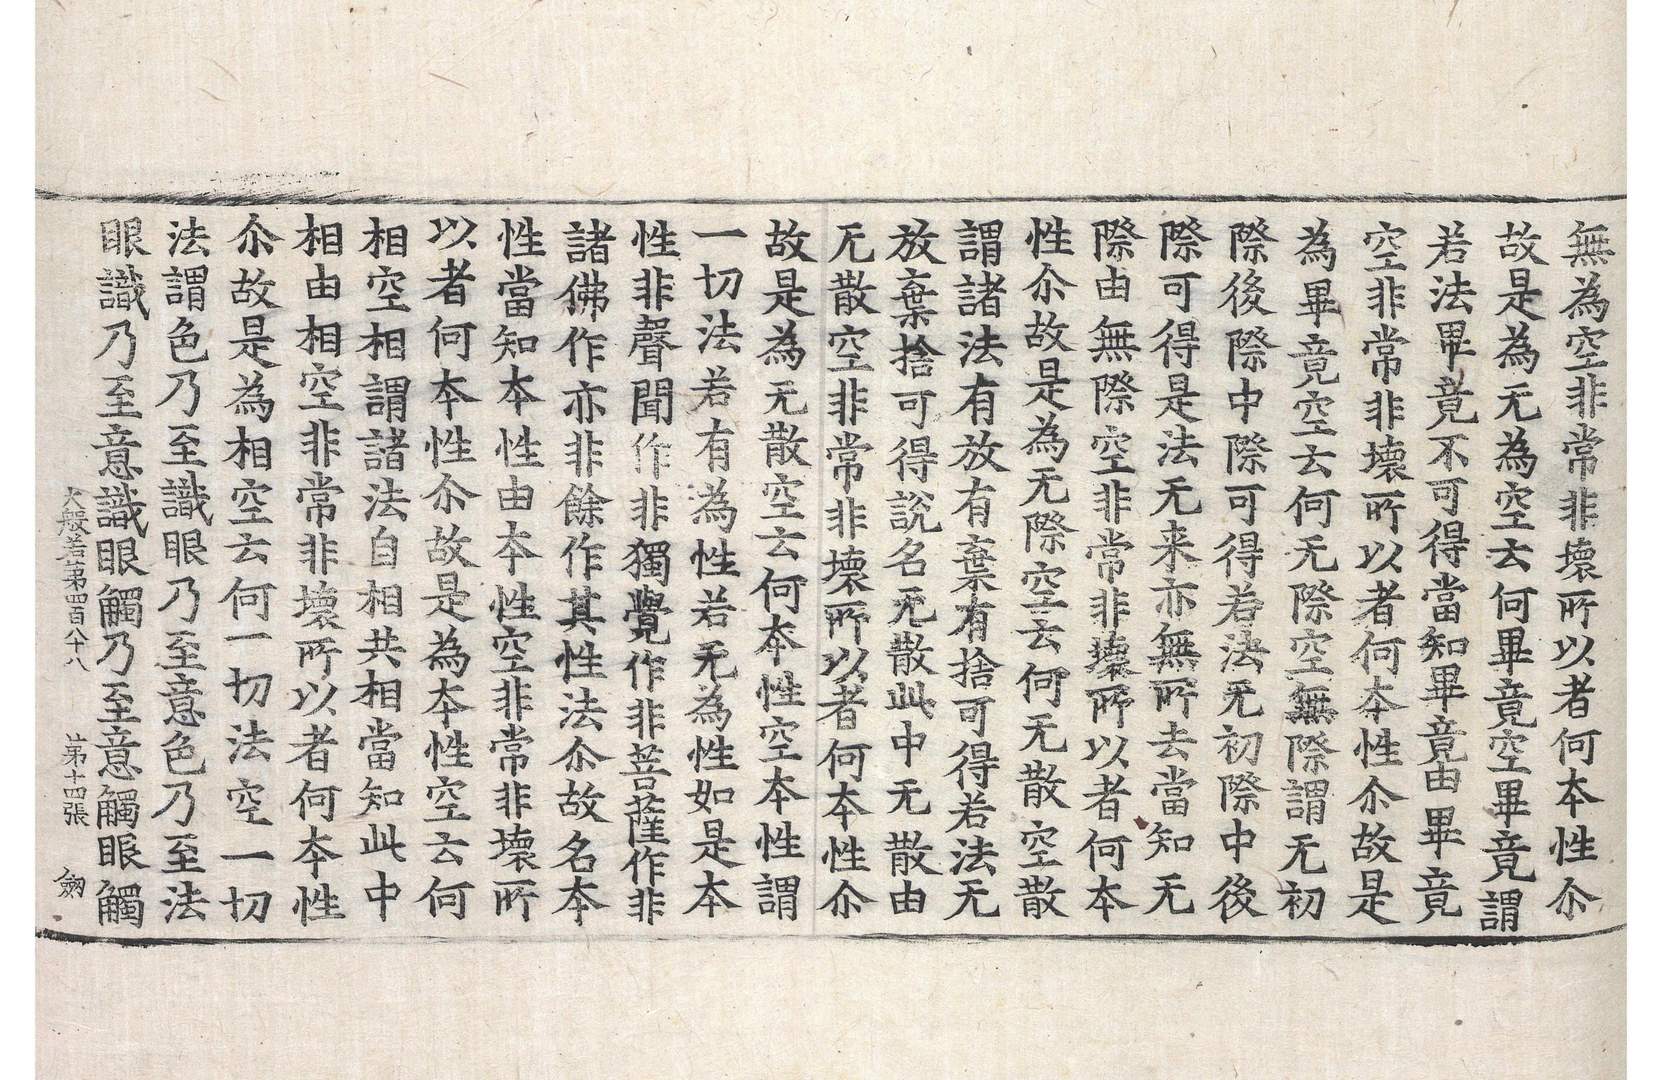 無為空非常非壞所以者何本性尒
故是為无為空云何畢竟空畢竟謂
若法畢竟不可得當知畢竟由畢竟
空非常非壞所以者何本性尒故是
為畢竟空云何无際空無際謂无初
際後際中際可得若法无初際中後
際可得是法无来亦無所去當知无
際由無際空非常非壞所以者何本
性尒故是為无際空云何无散空散
謂諸法有放有棄有捨可得若法无
放棄捨可得說名无散此中无散由
无散空非常非壞所以者何本性尒
故是為无散空云何本性空本性謂
一切法若有為性若无為性如是本
性非聲聞作非獨覺作非菩薩作非
諸佛作亦非餘作其性法尒故名本
性當知本性由本性空非常非壞所
以者何本性尒故是為本性空云何
相空相謂諸法自相共相當知此中
相由相空非常非壞所以者何本性
尒故是為相空云何一切法空一切
法謂色乃至識眼乃至意色乃至法
眼識乃至意識眼觸乃至意觸眼觸
大般若第四百八十八 第十四張 劒